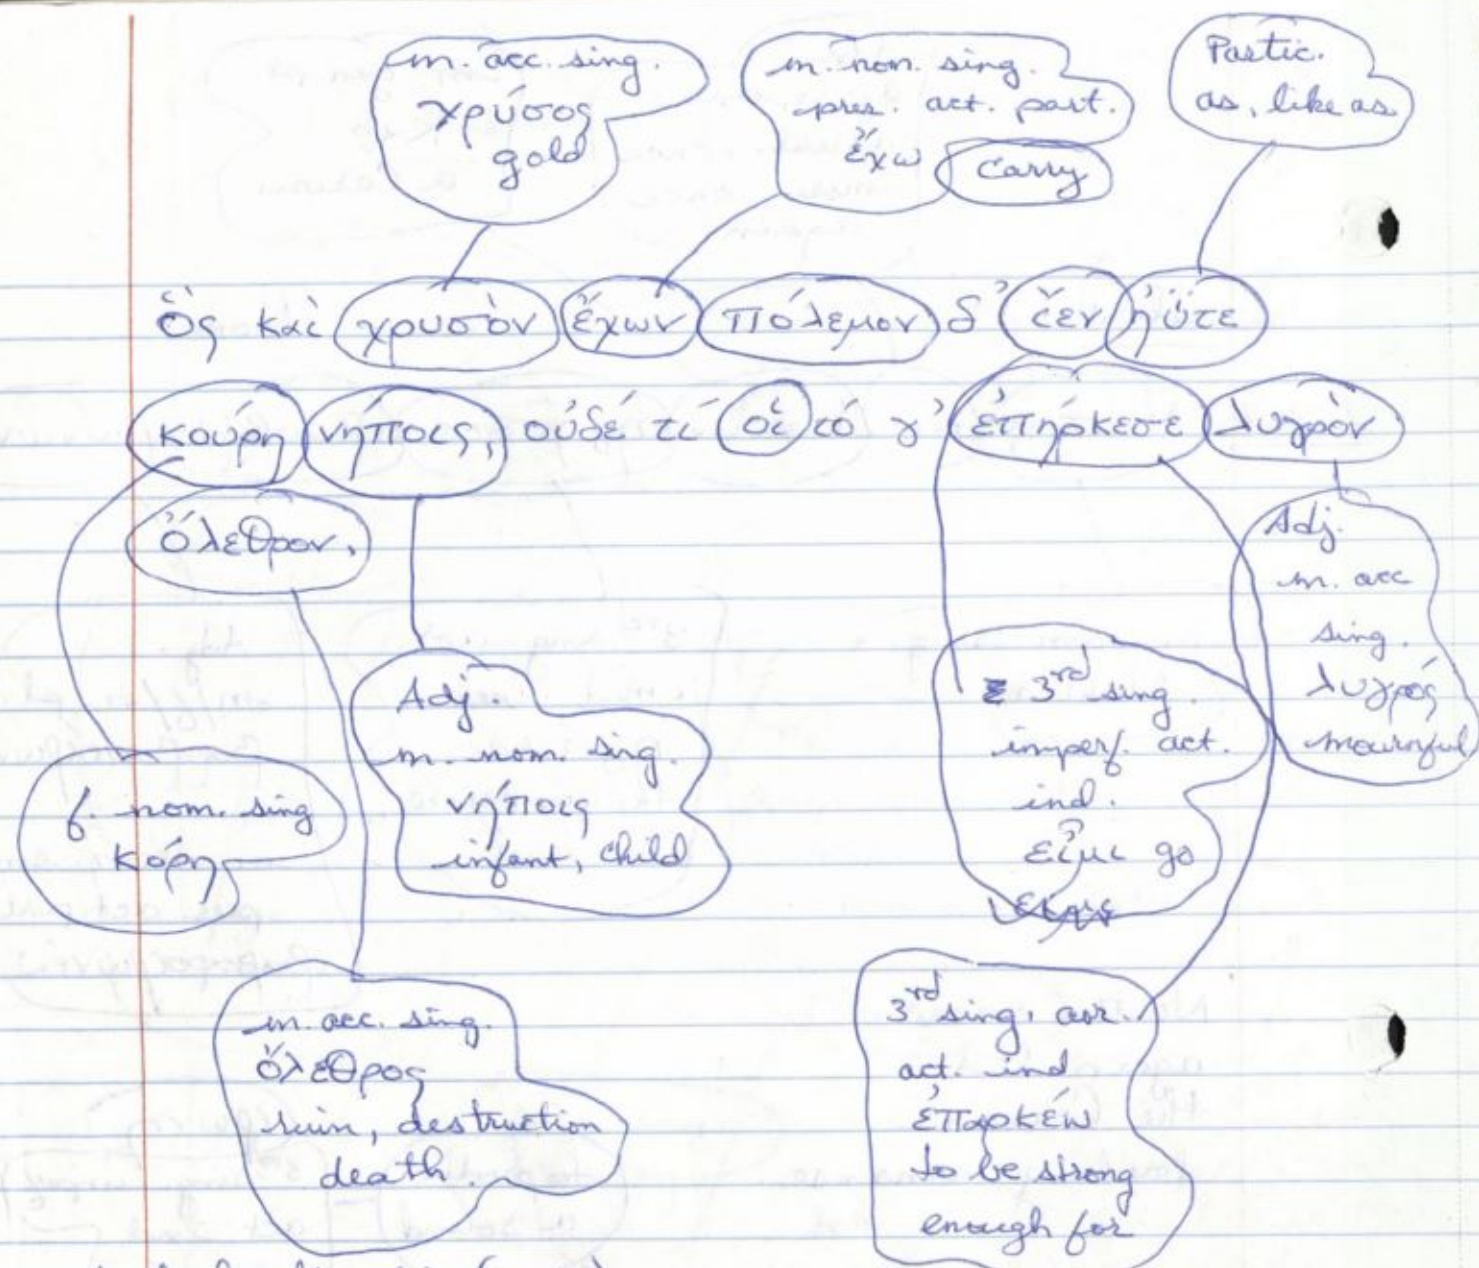 m. acc. sing.
χρύσος
gold
m. nom. sing.
pres. act. part.
ἔχω carry
Partic.
as, like as
ὃς καὶ χρυσὸν ἔχων πόλεμον δ' ἴεν ἠΰτε
κούρη νήπιος, οὐδέ τί οἱ τό γ' ἐπήρκεσε λυγρὸν
ὄλεθρον,
Adj.
m. acc
sing.
λυγρός
mournful
3rd sing.
imperf. act.
ind.
εἶμι go
Adj.
m. nom. sing.
νήπιος
infant, child
f. nom. sing
κόρη
m. acc. sing.
ὄλεθρος
ruin, destruction
death.
3rd sing. aor.
act. ind
ἐπαρκέω
to be strong
enough for